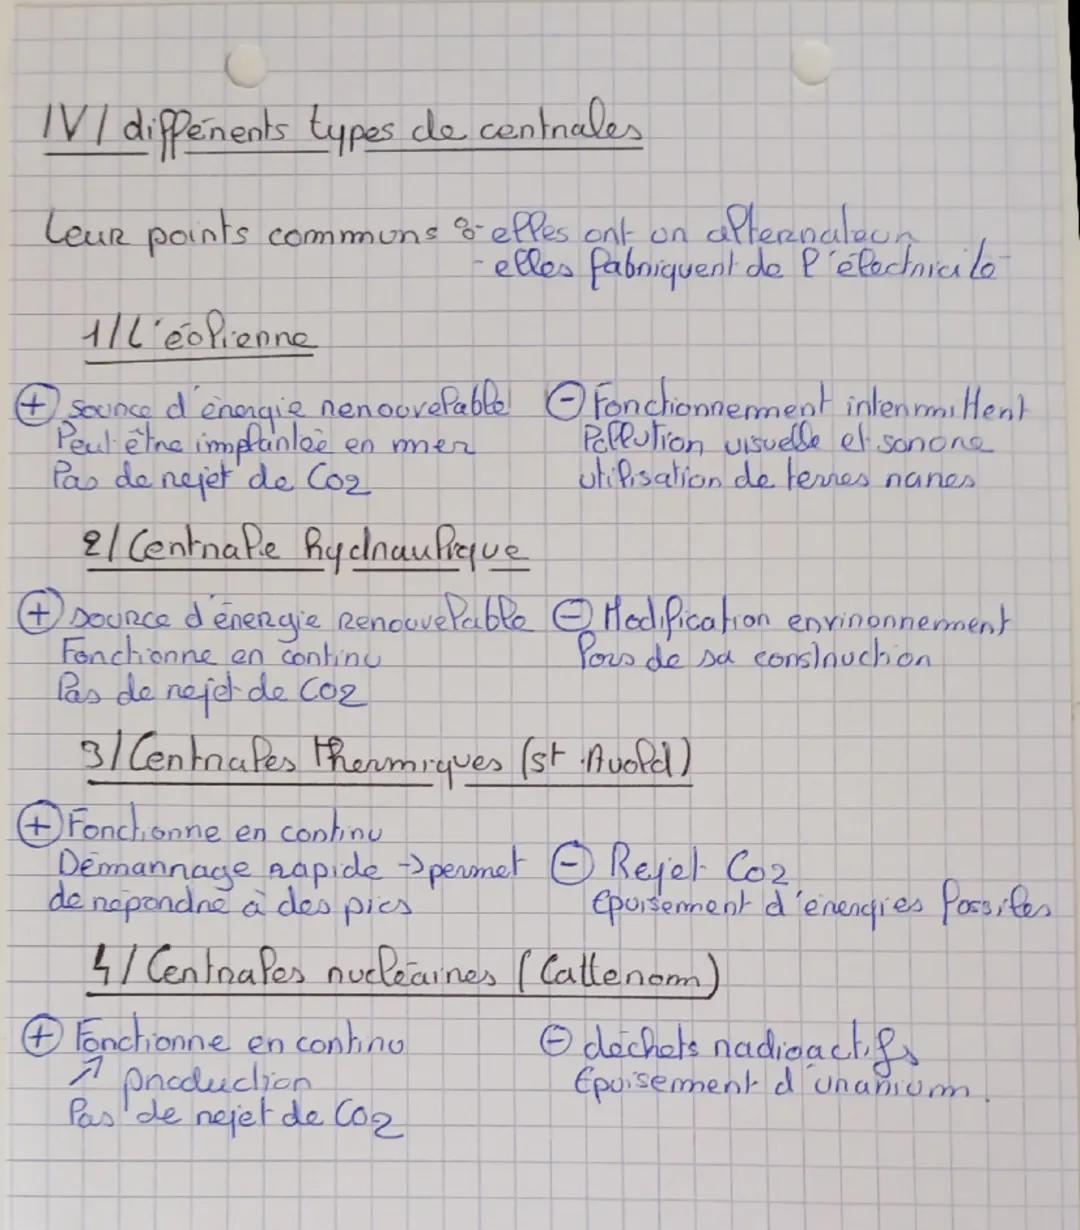 IV/ différents types de centrales
Leur points communs :- elles ont un alternateur
- elles fabriquent de l'électricité
1/ L'éolienne
+ source d'énergie renouvelable
Peut être implantée en mer
Pas de rejet de CO2
- Fonctionnement intermittent
Pollution visuelle et sonore
utilisation de terres rares
2/ Centrale hydraulique
+ source d'énergie renouvelable
Fonctionne en continu
Pas de rejet de CO2
- Modification environnement
lors de sa construction
3/ Centrales thermiques (st Avold)
+ Fonctionne en continu
Démarrage rapide → permet
de répondre à des pics
- Rejet CO2
Epuisement d'énergies fossiles
4/ Centrales nucléaires (Cattenom)
+ Fonctionne en continu
↗ production
Pas de rejet de CO2
- déchets radioactifs
Epuisement d'uranium.